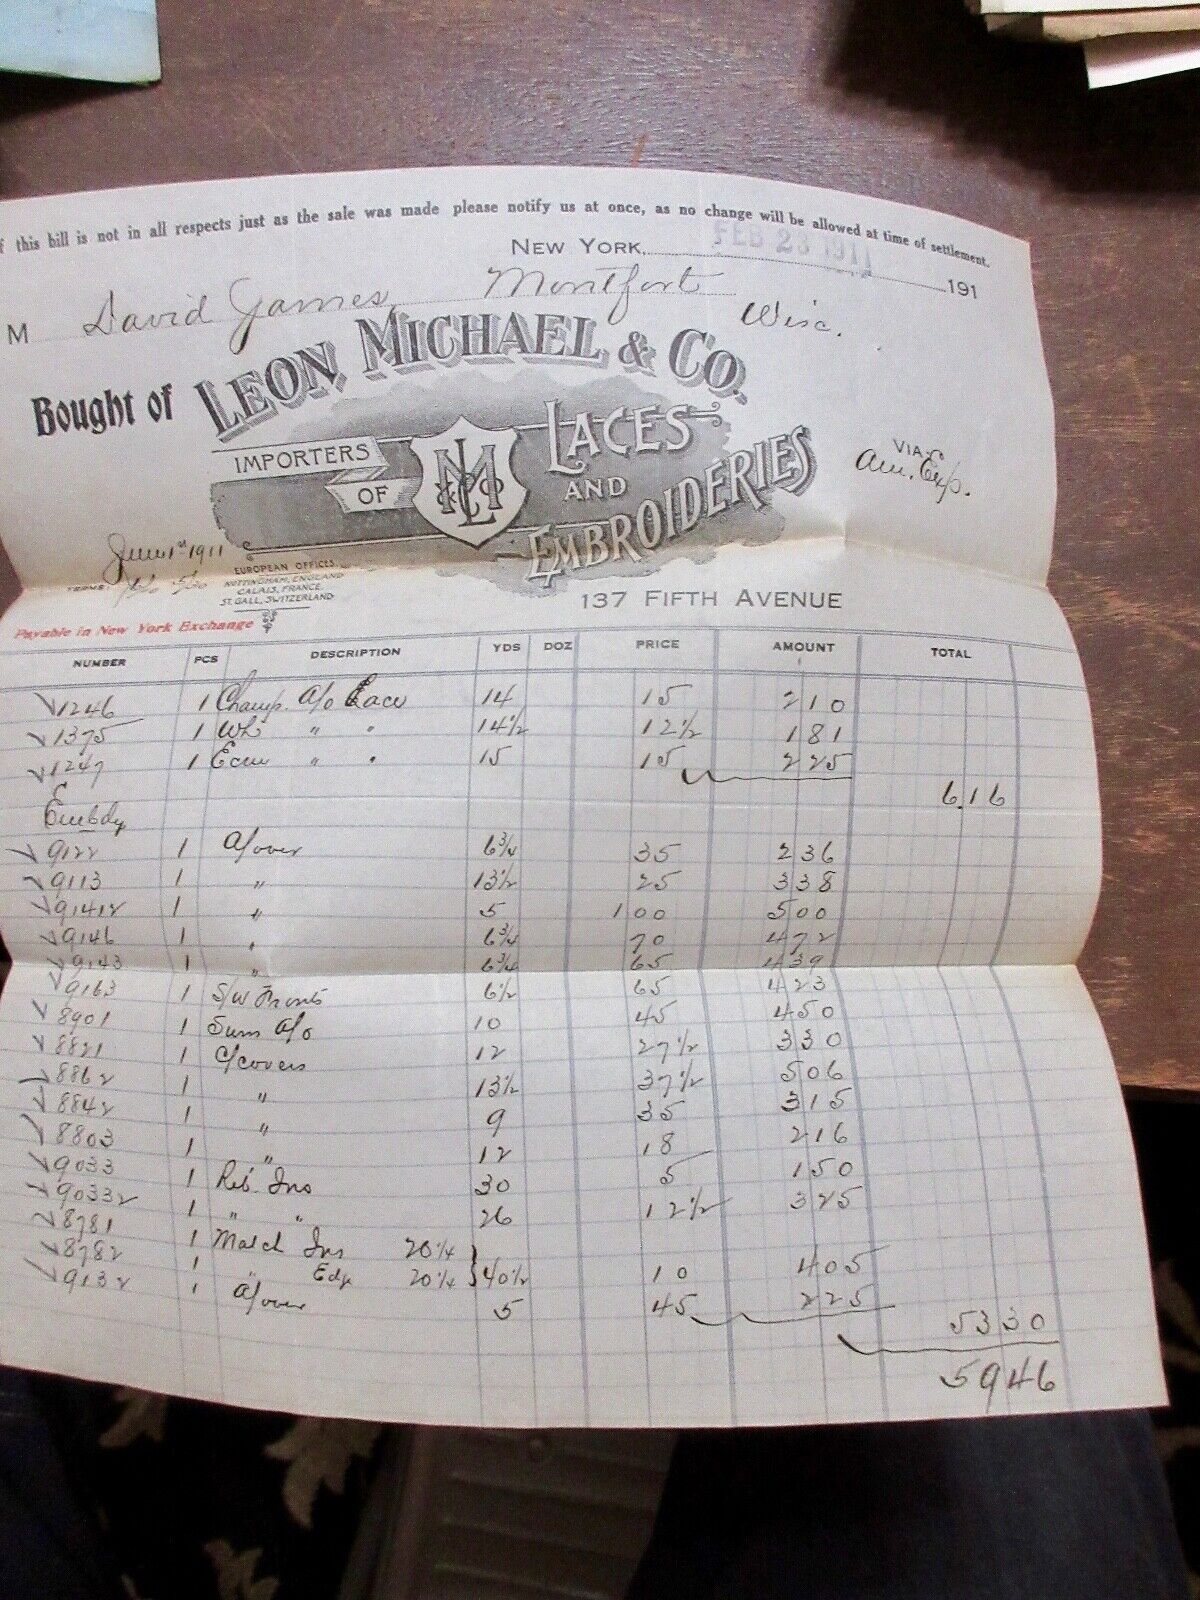 f this bill is not in all respects just as the sale was made please notify us at once, as no change will be allowed at time of settlement.
NEW YORK, FEB 23 1911 191
M David James, Montfort Wisc.
Bought of LEON, MICHAEL & CO.
IMPORTERS OF LACES AND EMBROIDERIES
MLCo
VIA
Am. Exp.
June 1st 1911
TERMS
EUROPEAN OFFICES
NOTTINGHAM, ENGLAND
CALAIS, FRANCE.
ST. GALL, SWITZERLAND
137 FIFTH AVENUE
Payable in New York Exchange
NUMBER PCS DESCRIPTION YDS DOZ PRICE AMOUNT TOTAL
1246 1 Champ. a/o Lace 14 15 210
1375 1 Wh " " 14½ 12½ 181
1247 1 Ecru " " 15 15 225
616
Embdy
9122 1 A/over 6¾ 35 236
9113 1 " 13½ 25 338
91412 1 " 5 100 500
9146 1 " 6¾ 70 472
9143 1 " 6¾ 65 439
9163 1 S/W Fronts 6½ 65 423
8901 1 Swm a/o 10 45 450
8821 1 C/covers 12 27½ 330
8862 1 " 13½ 37½ 506
8842 1 " 9 35 315
8803 1 " 12 18 216
9033 1 Rib. Ins 30 5 150
90332 1 " " 26 12½ 325
8781 1 Match Ins 20¼
8782 1 " Edg 20¼ } 40½ 10 405
9132 1 A/over 5 45 225
5330
5946